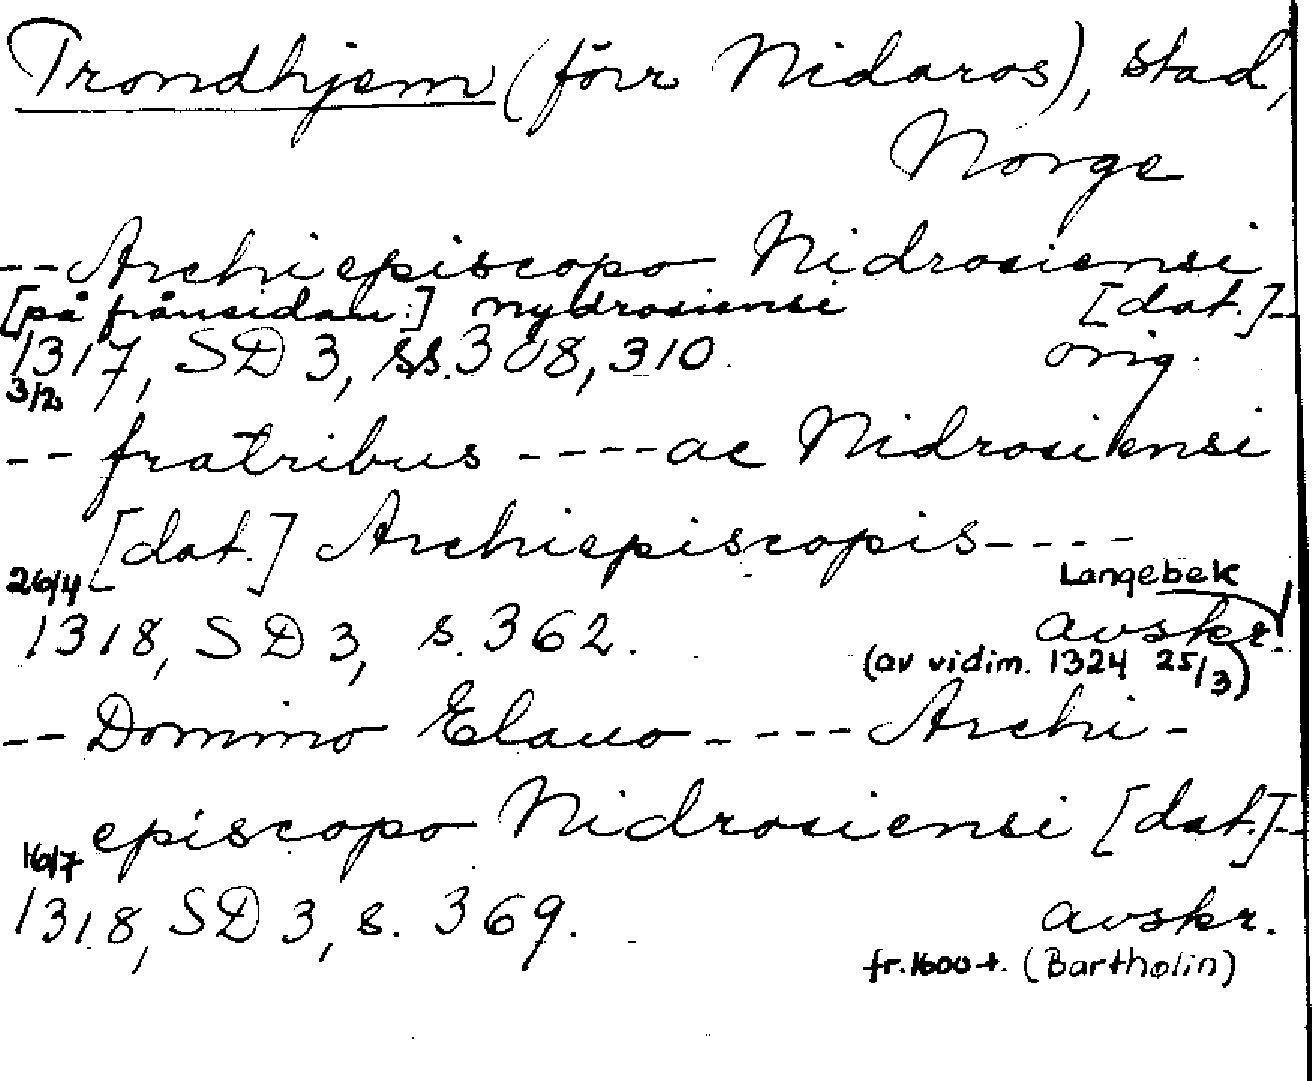 Trondhjem (förr Nidaros), stad,
Norge
-- Archiepiscopo Nidrosiensi
[på frånsidan:] nydrosiensi [dat.]-
1317, SD 3, ss. 308, 310. orig.
3/2
-- fratribus ---- ac Nidrosiensi
[dat.] Archiepiscopis ----
26/4 Langebek
1318, SD 3, s. 362. avskr.
(av vidim. 1324 25/3)
-- Domino Elauo ---- Archi-
episcopo Nidrosiensi [dat.]-
16/7
1318, SD 3, s. 369. avskr.
fr. 1600-t. (Bartholin)